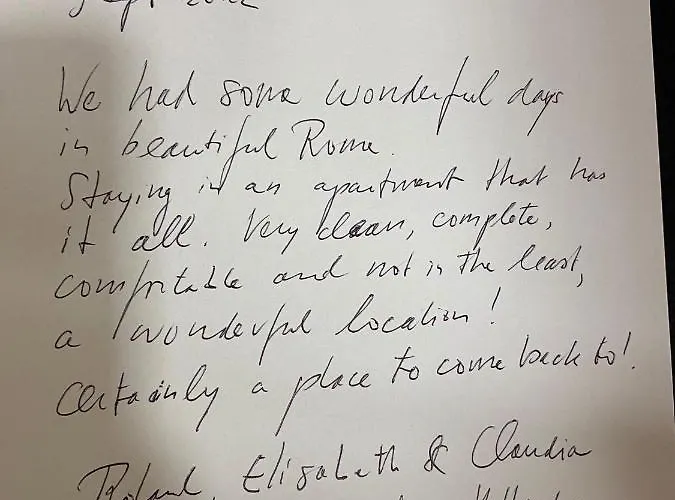 Sept 2022
We had some wonderful days
in beautiful Rome.
Staying in an apartment that has
it all. Very clean, complete,
comfortable and not in the least,
a wonderful location!
Certainly a place to come back to!
Roland, Elisabeth & Claudia